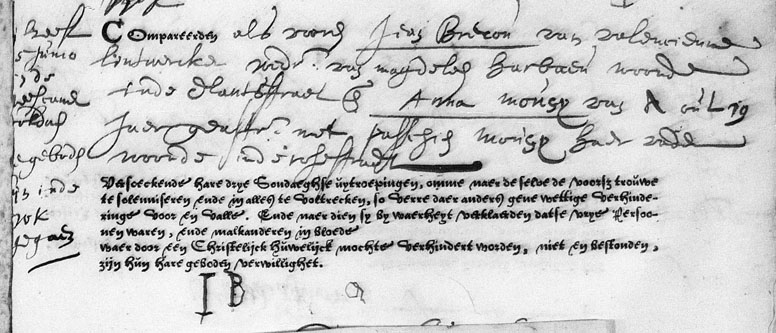 Compareerden als vooren Jean Brecou van valencienne
lintwercker wedr. van magdeleen Barbaen woont
inde Elantstraet & Anna mousy van A out 19
Jaer geass. met passchier mousy haer vader
woont in de
Versoeckende hare drye Sondaeghse uytroepingen, omme naer de selve de voorsz trouwe
te solemniseren ende in alles te voltrecken, so verre daer anders gene wettige verhinde-
ringe voor en valle. Ende naer dien sy by waerheyt verklaerden datse vrye Persoo-
nen waren, ende malkanderen in bloede
waer door een Christelijck huwelijck mochte verhindert worden, niet en bestonden,
zijn hun hare geboden verwillighet.
I B